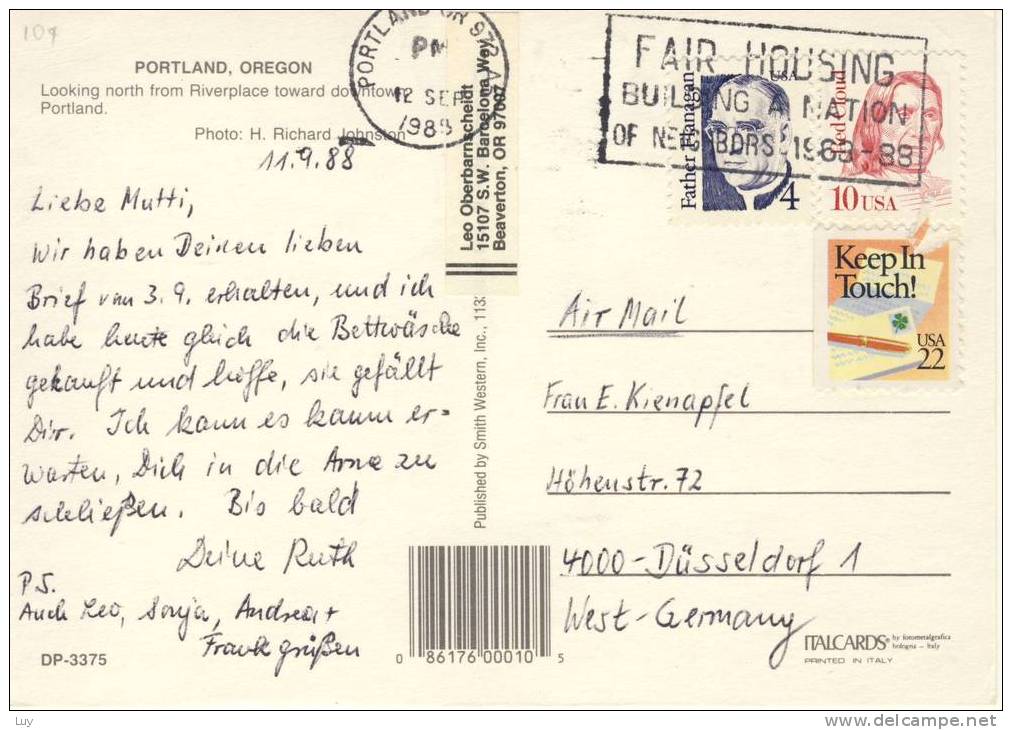 107
PORTLAND, OREGON
Looking north from Riverplace toward downtown
Portland.
Photo: H. Richard Johnston
11.9.88
Liebe Mutti,
Wir haben Deinen lieben
Brief vom 3.9. erhalten, und ich
habe heute gleich die Bettwäsche
gekauft und hoffe, sie gefällt
Dir. Ich kann es kaum er=
warten, Dich in die Arme zu
schließen. Bis bald
Deine Ruth
P.S.
Auch Leo, Sonja, Andrea +
Frank grüßen
DP-3375
PORTLAND OR 972
PM
12 SEP
1988
Leo Oberbarnscheidt
15107 S.W. Barcelona Way
Beaverton, OR 97007
Published by Smith Western, Inc., 113
0 86176 00010 5
FAIR HOUSING
BUILDING A NATION
OF NEIGHBORS 1968-88
Father Flanagan
USA
4
Red Cloud
10 USA
Keep In
Touch!
USA
22
Air Mail
Frau E. Kienapfel
Höhenstr. 72
4000-Düsseldorf 1
West-Germany
ITALCARDS® by fotometalgrafica
bologna - Italy
PRINTED IN ITALY
Luy
www.delcampe.net